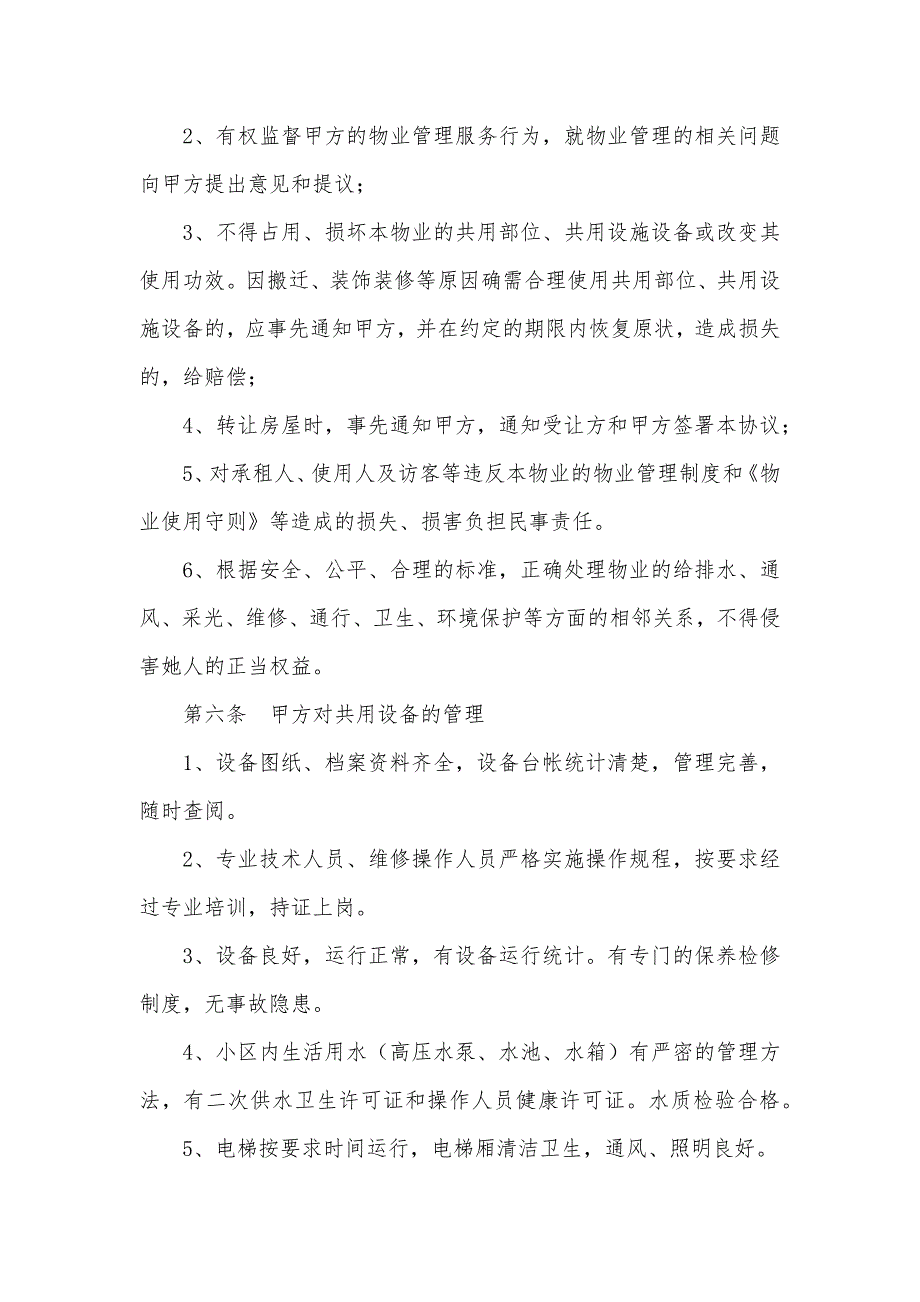 2、有权监督甲方的物业管理服务行为，就物业管理的相关问题
向甲方提出意见和提议；
3、不得占用、损坏本物业的共用部位、共用设施设备或改变其
使用功效。因搬迁、装饰装修等原因确需合理使用共用部位、共用设
施设备的，应事先通知甲方，并在约定的期限内恢复原状，造成损失
的，给赔偿；
4、转让房屋时，事先通知甲方，通知受让方和甲方签署本协议；
5、对承租人、使用人及访客等违反本物业的物业管理制度和《物
业使用守则》等造成的损失、损害负担民事责任。
6、根据安全、公平、合理的标准，正确处理物业的给排水、通
风、采光、维修、通行、卫生、环境保护等方面的相邻关系，不得侵
害她人的正当权益。
第六条　甲方对共用设备的管理
1、设备图纸、档案资料齐全，设备台帐统计清楚，管理完善，
随时查阅。
2、专业技术人员、维修操作人员严格实施操作规程，按要求经
过专业培训，持证上岗。
3、设备良好，运行正常，有设备运行统计。有专门的保养检修
制度，无事故隐患。
4、小区内生活用水（高压水泵、水池、水箱）有严密的管理方
法，有二次供水卫生许可证和操作人员健康许可证。水质检验合格。
5、电梯按要求时间运行，电梯厢清洁卫生，通风、照明良好。